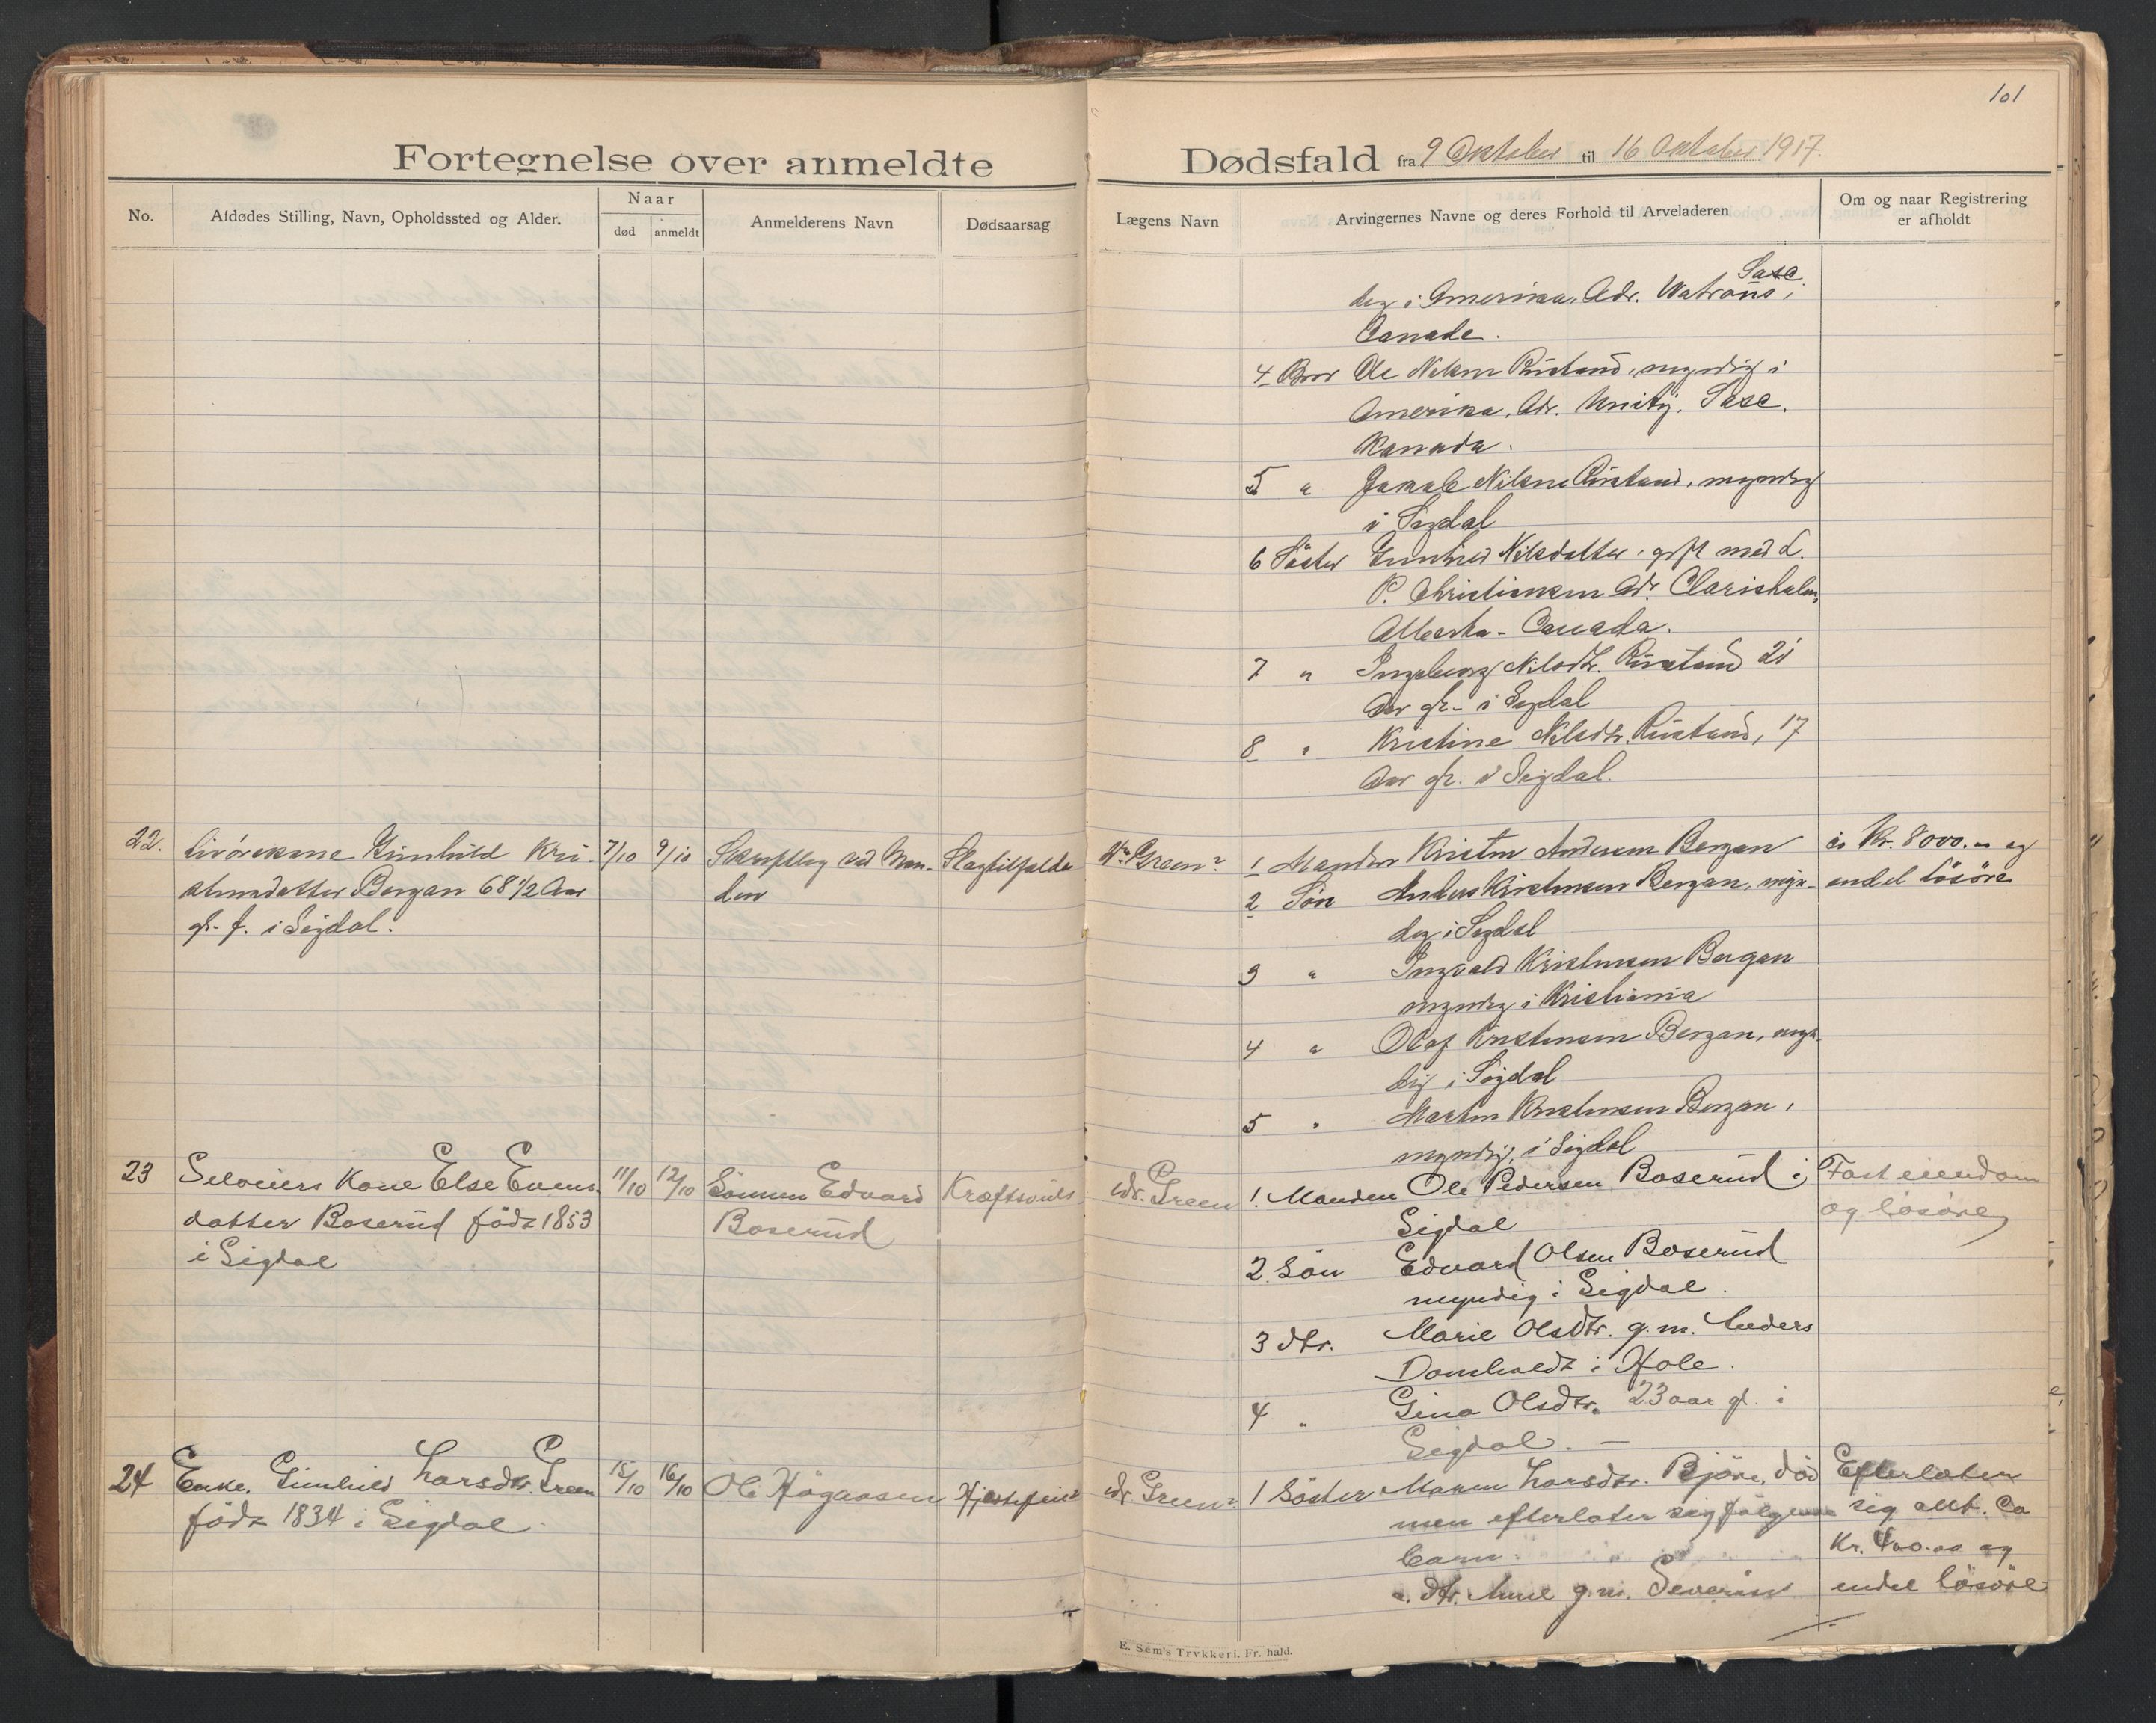 101
Fortegnelse over anmeldte Dødsfald fra 9 Oktober til 16 Oktober 1917.
No.
Afdødes Stilling, Navn, Opholdssted og Alder.
Naar
død
anmeldt
Anmelderens Navn
Dødsaarsag
Lægens Navn
Arvingernes Navne og deres Forhold til Arveladeren
Om og naar Registrering
er afholdt
Sasc.
dig i Amerika, Adr. Watrous,
Canada.
4 Bror Ole Nilsen Rustand, myndig i
Amerika, Adr. Unity, Sasc.
Kanada.
5 " Jakob Nilsen Rustand, myndig
i Sigdal
6 Søster Gunhild Nilsdatter, gift med L.
P. Christiansen Adr. Clarisholm,
Alberta - Canada.
7 " Ingeborg Nilsdtr. Rustand 21
Aar gl. i Sigdal
8 " Kristine Nilsdtr. Rustand, 17
Aar gl. i Sigdal.
22. Livørekone Gunhild Kri-
stensdatter Bergan 68 1/2 Aar
gl. f. i Sigdal.
7/10 9/10
Skriftlig ved Man-
den
Slagtilfælde
Dr. Green
1 Manden Kristen Andersen Bergan
2 Søn Anders Kristensen Bergan, myn-
dig i Sigdal
3 " Ingvald Kristensen Bergan
myndig i Kristiania
4 " Olaf Kristensen Bergan, myn-
dig i Sigdal
5 " Martin Kristensen Bergan,
myndig, i Sigdal
Kr. 8000.00 og
endel løsøre
23 Selveiers Kone Else Evens-
datter Boserud født 1853
i Sigdal
11/10 12/10
Sønnen Edvard
Boserud
Kræftsvuls
Dr. Green
1. Manden Ole Pedersen Boserud i
Sigdal
2. Søn Edvard Olsen Boserud
myndig i Sigdal.
3 dtr. Marie Olsdtr. g. m. Anders
Domholdt i Hole.
4 " Gina Olsdtr. 23 aar gl. i
Sigdal. —
Fast eiendom
og løsøre
24 Enke, Gunhild Larsdtr. Green
født 1834 i Sigdal.
15/10 16/10
Ole Høgaasen
Hjertefeil
Dr Green
1 Søster Maren Larsdtr. Bjøre, død
men efterlater sig følgende
barn:
a. dtr. Anne g. m. Severin
Efterlater
sig alt. Ca
Kr. 400.00 og
endel løsøre
E. Sem's Trykkeri, Fr. hald.